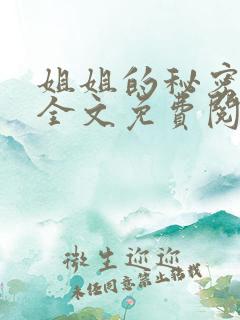 姐姐的秘密
全文免费阅
微生迎迎
未经同意禁止转载